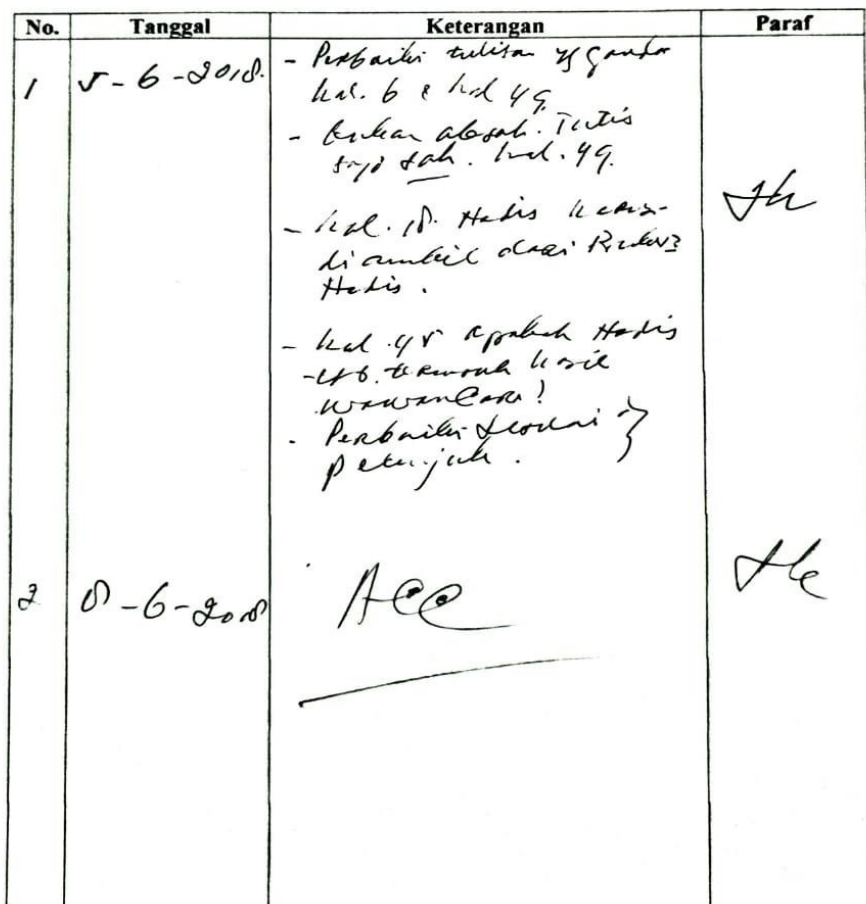 No. Tanggal Keterangan Paraf
1 5-6-2018. - Perbaiki tulisan yg ganda
hal. 6 & hal 49
- bukan absah. Tulis
saja sah. hal. 49.
- hal. 18. Hadis harus
diambil dari
Hadis.
- hal. 45 apakah Hadis
tsb. termasuk hasil
wawancara?
- Perbaiki sesuai
petunjuk.
2 8-6-2018 Acc